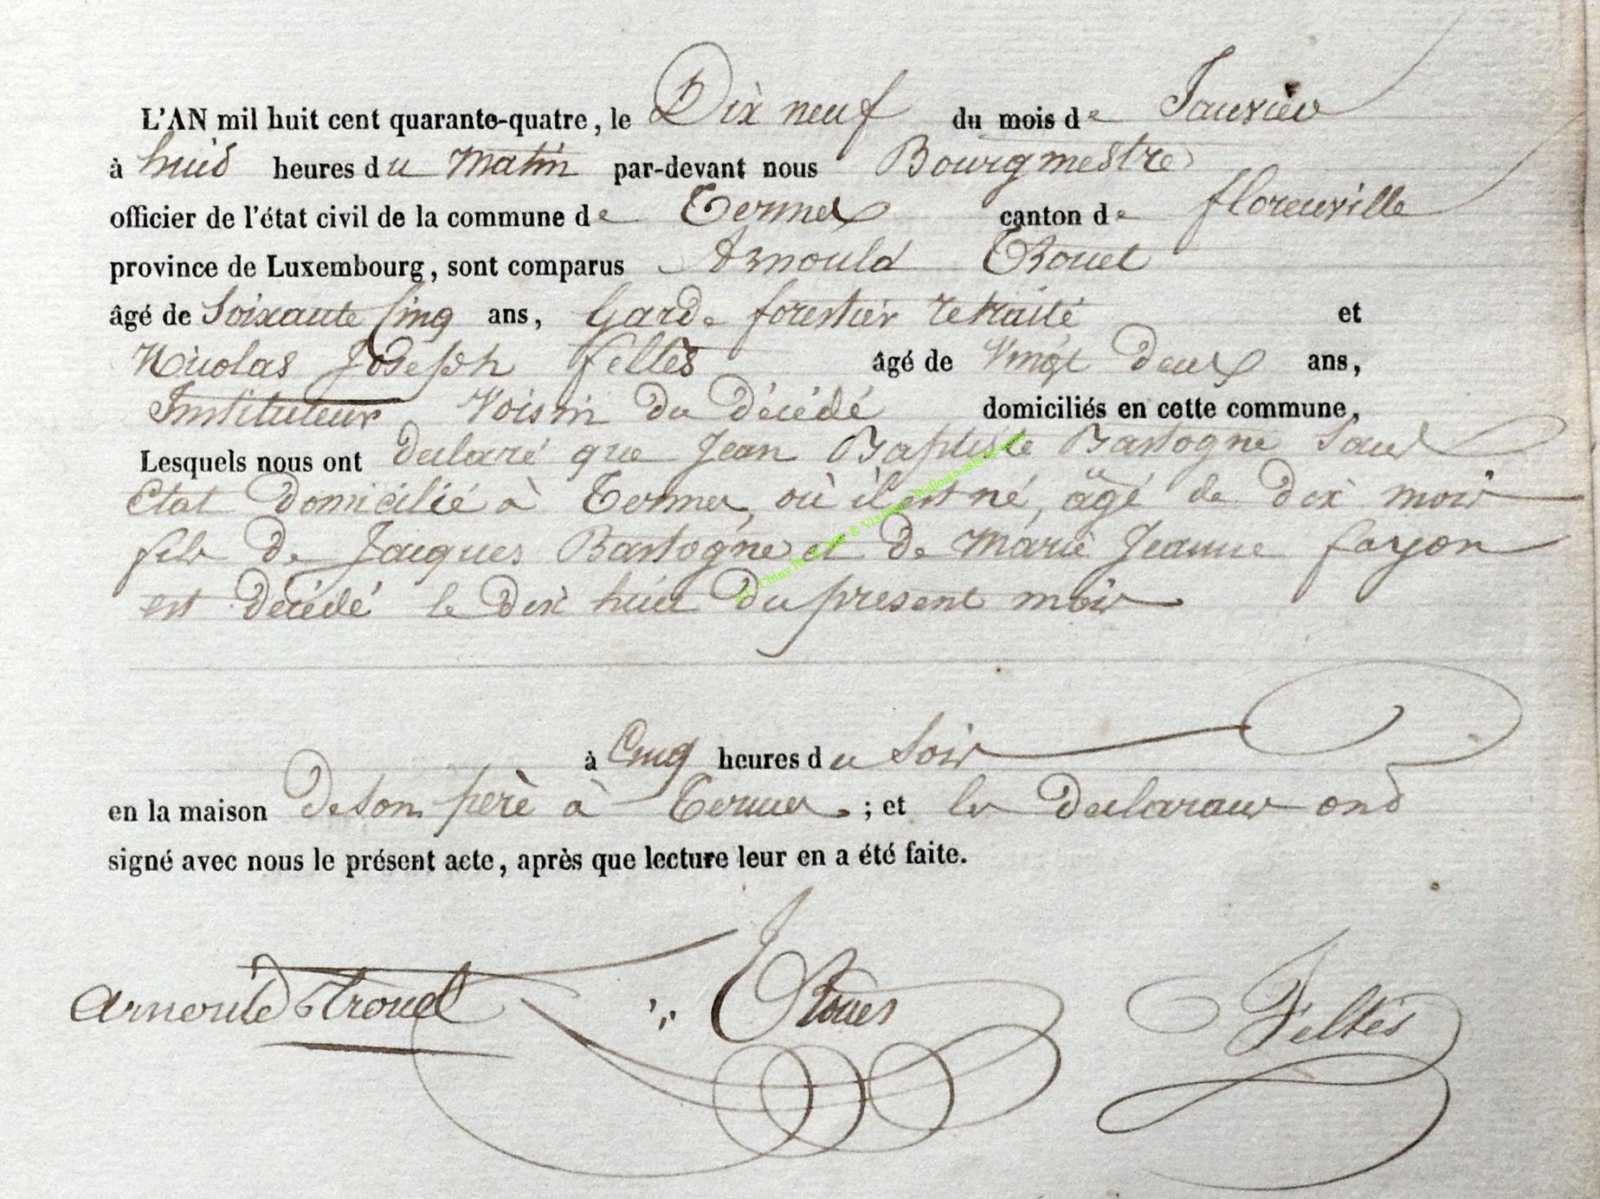 L'AN mil huit cent quarante-quatre, le Dix neuf du mois de Janvier
à huit heures du Matin par-devant nous Bourgmestre
officier de l'état civil de la commune de Termes canton de florenville
province de Luxembourg, sont comparus Arnould Trouet
âgé de Soixante Cinq ans, Garde forestier retraité et
Nicolas Joseph feltès âgé de Vingt deux ans,
Instituteur Voisin du décédé domiciliés en cette commune,
Lesquels nous ont declaré que Jean Baptiste Bastogne Sans
Etat domicilié à Termes, où il est né, âgé de dix mois
fils de Jacques Bastogne et de Marie Jeanne fayon
est décédé le dix huit du present mois
à Cinq heures du Soir
en la maison de son père à Termes ; et les declarans ont
signé avec nous le présent acte, après que lecture leur en a été faite.
Arnould Trouet Feltès